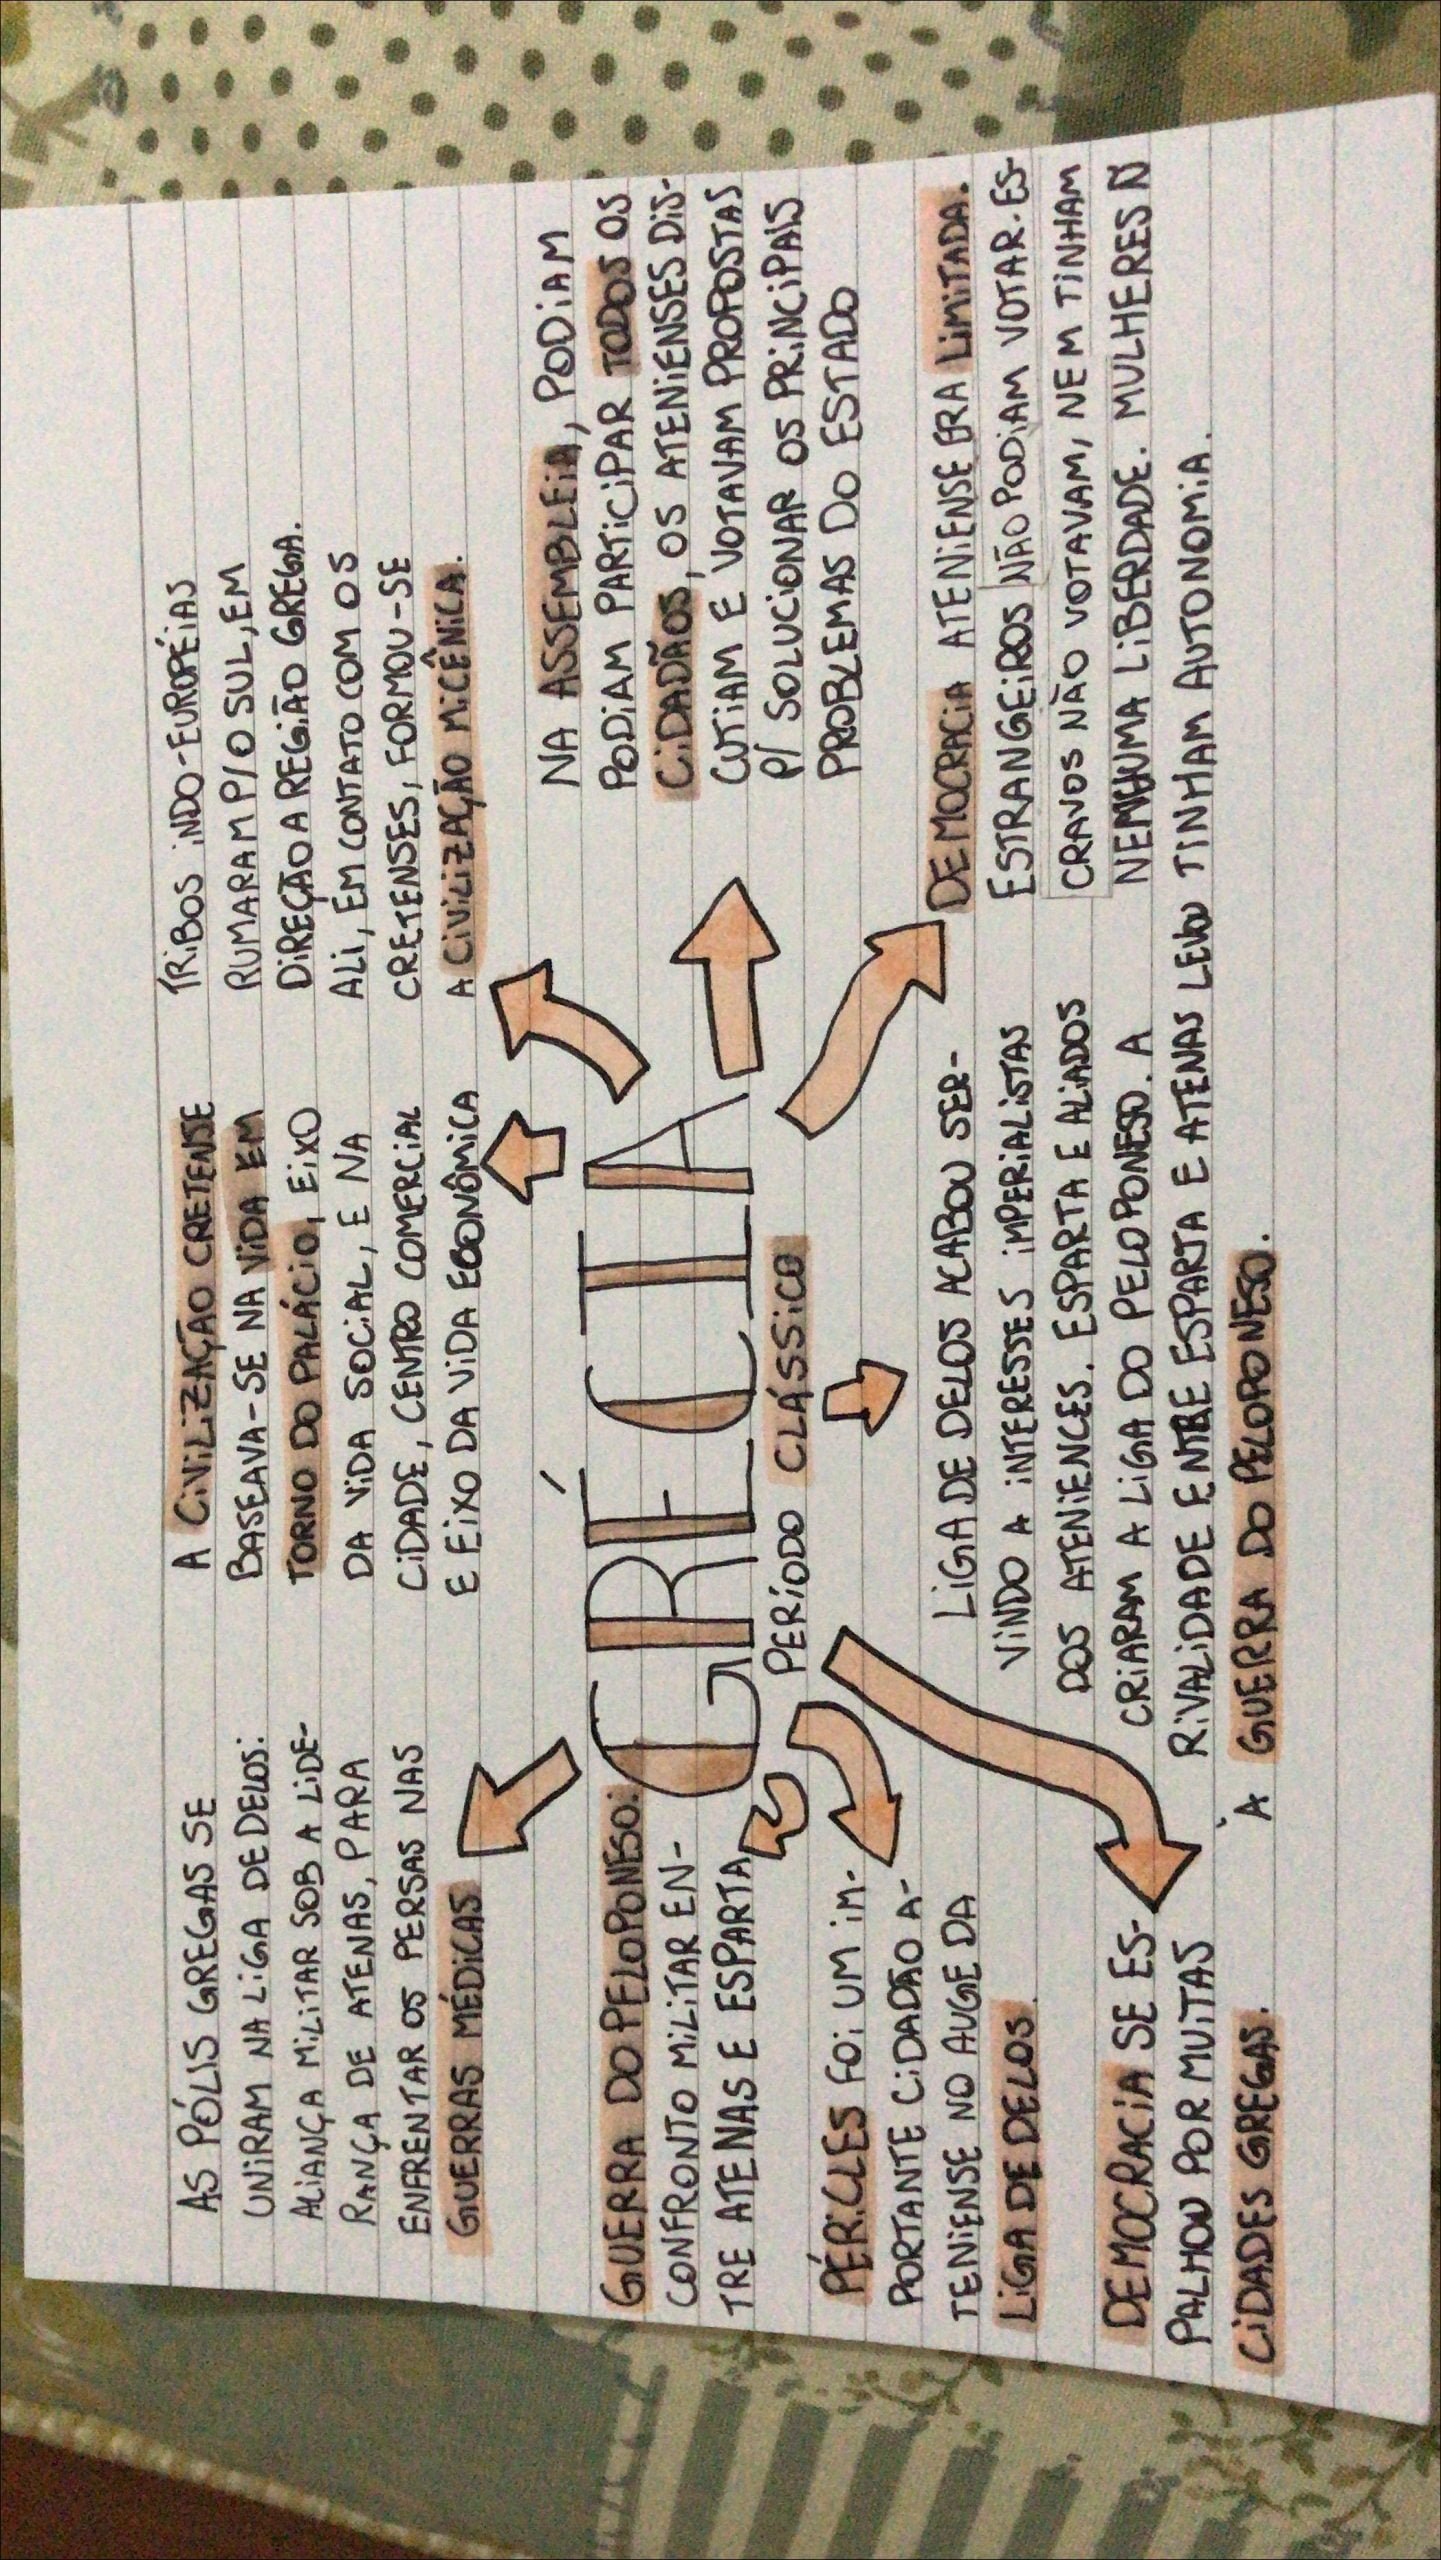 AS PÓLIS GREGAS SE
UNIRAM NA LIGA DE DELOS:
ALIANÇA MILITAR SOB A LIDE-
RANÇA DE ATENAS, PARA
ENFRENTAR OS PERSAS NAS
GUERRAS MÉDICAS
A CIVILIZAÇÃO CRETENSE
BASEAVA-SE NA VIDA EM
TORNO DO PALÁCIO, EIXO
DA VIDA SOCIAL, E NA
CIDADE, CENTRO COMERCIAL
E EIXO DA VIDA ECONÔMICA
TRIBOS INDO-EUROPÉIAS
RUMARAM P/ O SUL, EM
DIREÇÃO A REGIÃO GREGA.
ALI, EM CONTATO COM OS
CRETENSES, FORMOU-SE
A CIVILIZAÇÃO MICÊNICA.
GUERRA DO PELOPONESO:
CONFRONTO MILITAR EN-
TRE ATENAS E ESPARTA
GRÉCIA
PERÍODO CLÁSSICO
NA ASSEMBLEIA, PODIAM
PODIAM PARTICIPAR TODOS OS
CIDADÃOS, OS ATENIENSES DIS-
CUTIAM E VOTAVAM PROPOSTAS
P/ SOLUCIONAR OS PRINCIPAIS
PROBLEMAS DO ESTADO
PÉRICLES FOI UM IM-
PORTANTE CIDADÃO A-
TENIENSE NO AUGE DA
LIGA DE DELOS.
LIGA DE DELOS ACABOU SER-
VINDO A INTERESSES IMPERIALISTAS
DOS ATENIENCES. ESPARTA E ALIADOS
CRIARAM A LIGA DO PELOPONESO. A
RIVALIDADE ENTRE ESPARTA E ATENAS LEVOU
À GUERRA DO PELOPONESO.
DEMOCRACIA ATENIENSE ERA LIMITADA.
ESTRANGEIROS NÃO PODIAM VOTAR. ES-
CRAVOS NÃO VOTAVAM, NEM TINHAM
NENHUMA LIBERDADE. MULHERES Ñ
TINHAM AUTONOMIA.
DEMOCRACIA SE ES-
PALHOU POR MUITAS
CIDADES GREGAS.